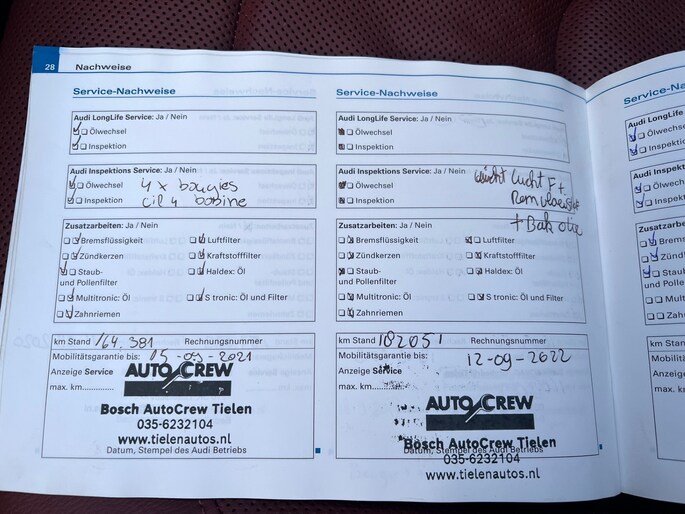 28 Nachweise
Service-Nachweise
Audi LongLife Service: Ja / Nein
Ölwechsel
Inspektion
Audi Inspektions Service: Ja / Nein
Ölwechsel 4 x bougies
Inspektion cil 4 bobine
Zusatzarbeiten: Ja / Nein
Bremsflüssigkeit Luftfilter
Zündkerzen Kraftstofffilter
Staub- Haldex: Öl
und Pollenfilter
Multitronic: Öl S tronic: Öl und Filter
Zahnriemen
km Stand 164.381 Rechnungsnummer
Mobilitätsgarantie bis: 05-09-2021
Anzeige Service
max. km
AUTO CREW
Bosch AutoCrew Tielen
035-6232104
www.tielenautos.nl
Datum, Stempel des Audi Betriebs
Service-Nachweise
Audi LongLife Service: Ja / Nein
Ölwechsel
Inspektion
Audi Inspektions Service: Ja / Nein
Ölwechsel
Inspektion
lucht Ft.
Remvloeistof
+ Bak olie
Zusatzarbeiten: Ja / Nein
Bremsflüssigkeit Luftfilter
Zündkerzen Kraftstofffilter
Staub- Haldex: Öl
und Pollenfilter
Multitronic: Öl S tronic: Öl und Filter
Zahnriemen
km Stand 182051 Rechnungsnummer
Mobilitätsgarantie bis: 12-09-2022
Anzeige Service
max. km
AUTO CREW
Bosch AutoCrew Tielen
Datum, Stempel des Audi Betriebs
035-6232104
www.tielenautos.nl
Service-N
Audi LongLife
Ölwechsel
Inspektio
Audi Inspekt
Ölwechse
Inspektion
Zusatzarbeite
Brems
Zündk
Staub-
und Pollenfilt
Multitr
Zahnri
km Stand
Mobilitäts
Anzeige S
max. km